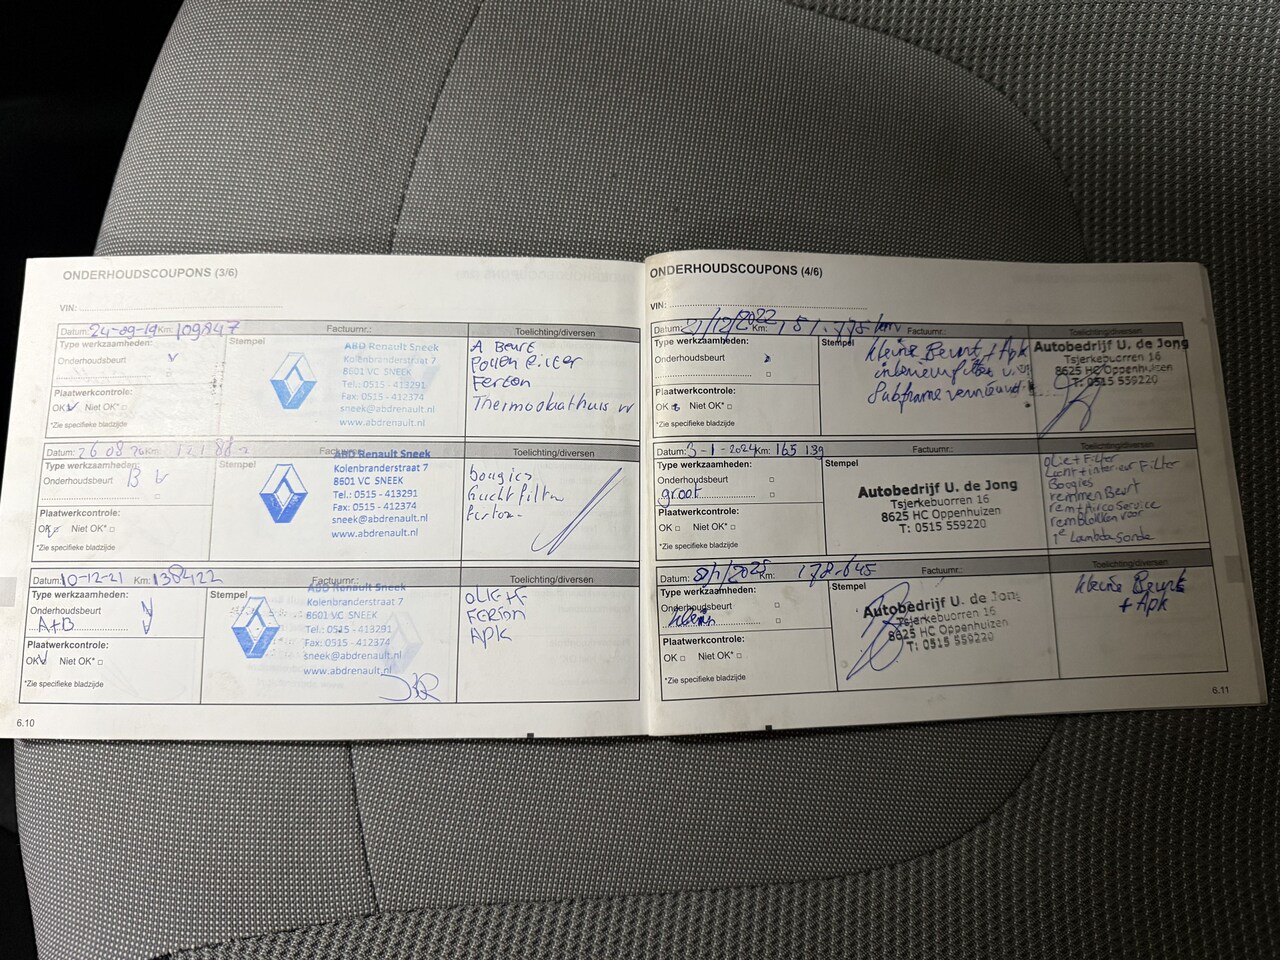 ONDERHOUDSCOUPONS (3/6)
VIN:
Datum: 24-09-19 Km: 109847 Factuurnr.: Toelichting/diversen
Type werkzaamheden:
Onderhoudsbeurt
Stempel
ABD Renault Sneek
Kolenbranderstraat 7
8601 VC SNEEK
Tel.: 0515 - 413291
Fax: 0515 - 412374
sneek@abdrenault.nl
www.abdrenault.nl
A Beurt
Pollen Filter
Ferton
Thermostaathuis
Plaatwerkcontrole:
OK Niet OK*
*Zie specifieke bladzijde
Datum: 26 08 Km:
Type werkzaamheden:
Onderhoudsbeurt B
Stempel
ABD Renault Sneek
Kolenbranderstraat 7
8601 VC SNEEK
Tel.: 0515 - 413291
Fax: 0515 - 412374
sneek@abdrenault.nl
www.abdrenault.nl
bougies
Luchtfilter
Ferton
Plaatwerkcontrole:
OK Niet OK*
*Zie specifieke bladzijde
Datum: 10-12-21 Km: 138422 Factuurnr.: Toelichting/diversen
Type werkzaamheden:
Onderhoudsbeurt
A+B
Stempel
ABD Renault Sneek
Kolenbranderstraat 7
8601 VC SNEEK
Tel.: 0515 - 413291
Fax: 0515 - 412374
sneek@abdrenault.nl
www.abdrenault.nl
OLIE+F
FERTON
APK
Plaatwerkcontrole:
OK Niet OK*
*Zie specifieke bladzijde
6.10
ONDERHOUDSCOUPONS (4/6)
VIN:
Datum: 21/12/2022 Km: Factuurnr.: Toelichting/diversen
Type werkzaamheden:
Onderhoudsbeurt
Stempel
kleine Beurt + Apk
interieurfilter
Subframe vernieuwd
Autobedrijf U. de Jong
Tsjerkebuorren 16
8625 HC Oppenhuizen
T: 0515 559220
Plaatwerkcontrole:
OK Niet OK*
*Zie specifieke bladzijde
Datum: 3-1-2024 Km: 165 139 Factuurnr.: Toelichting/diversen
Type werkzaamheden:
Onderhoudsbeurt
groot
Stempel
Autobedrijf U. de Jong
Tsjerkebuorren 16
8625 HC Oppenhuizen
T: 0515 559220
olie+Filter
Lucht+interieur Filter
Bougies
remmen Beurt
rem+Airco Service
remblokken voor
1e Lambda Sonde
Plaatwerkcontrole:
OK Niet OK*
*Zie specifieke bladzijde
Datum: 8/1/2025 Km: 172.645 Factuurnr.: Toelichting/diversen
Type werkzaamheden:
Onderhoudsbeurt
klein
Stempel
Autobedrijf U. de Jong
Tsjerkebuorren 16
8625 HC Oppenhuizen
T: 0515 559220
kleine Beurt
+ Apk
Plaatwerkcontrole:
OK Niet OK*
*Zie specifieke bladzijde
6.11